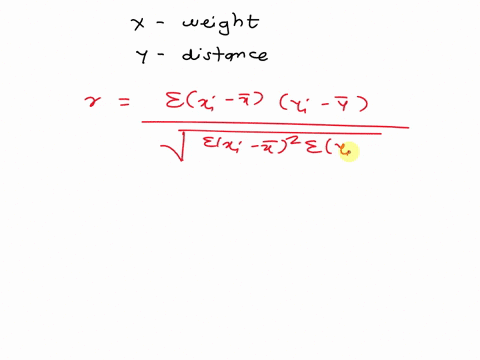 x - weight
y - distance
r = Σ(xᵢ - x̄) (yᵢ - ȳ)
√Σ(xᵢ - x̄)² Σ(yᵢ